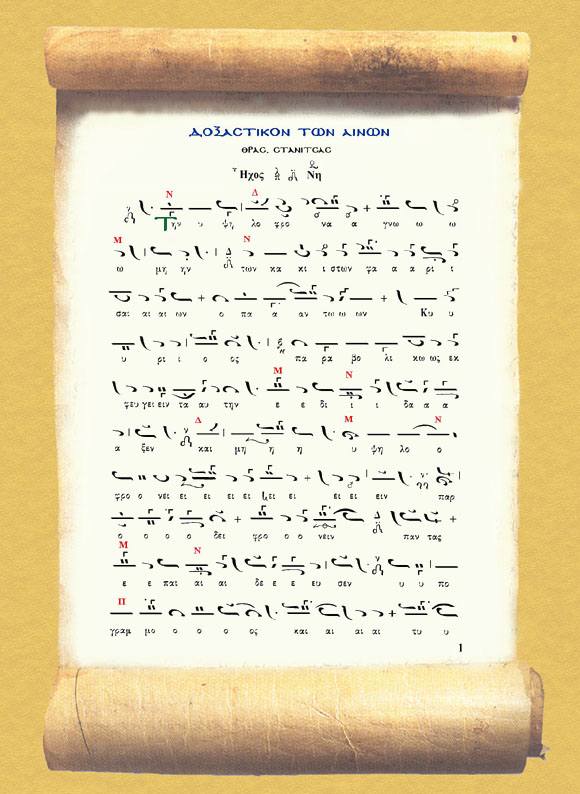 ΔΟΞΑΣΤΙΚΟΝ ΤΩΝ ΑΙΝΩΝ
ΘΡΑΣ. ΣΤΑΝΙΤΣΑΣ
Ἦχος Νη
Ν Δ
Την υ ψη λο φρο να α γνω ω ω
Μ Ν
ω μη ην των κα κι ι στων φα α α ρι ι
σαι αι αι ων ο πα α αν τω ω ων Κυ υ
υ ρι ι ο ος πα ρα βο λι κω ως εκ
Μ Ν
φευ γει ειν τα αυ την ε ε δι ι ι δα α α
Δ Μ Ν
α ξεν και μη η η υ ψη λο ο
φρο ο νει ει ει ει ει ει ει ει ει ειν παρ
ο ο ο ο δει φρο ο ο νειν παν τας
Μ Ν
ε ε παι αι αι δε ε ε ευ σεν υ υ πο
Π
γραμ μο ο ο ο ος και αι αι αι τυ υ
1